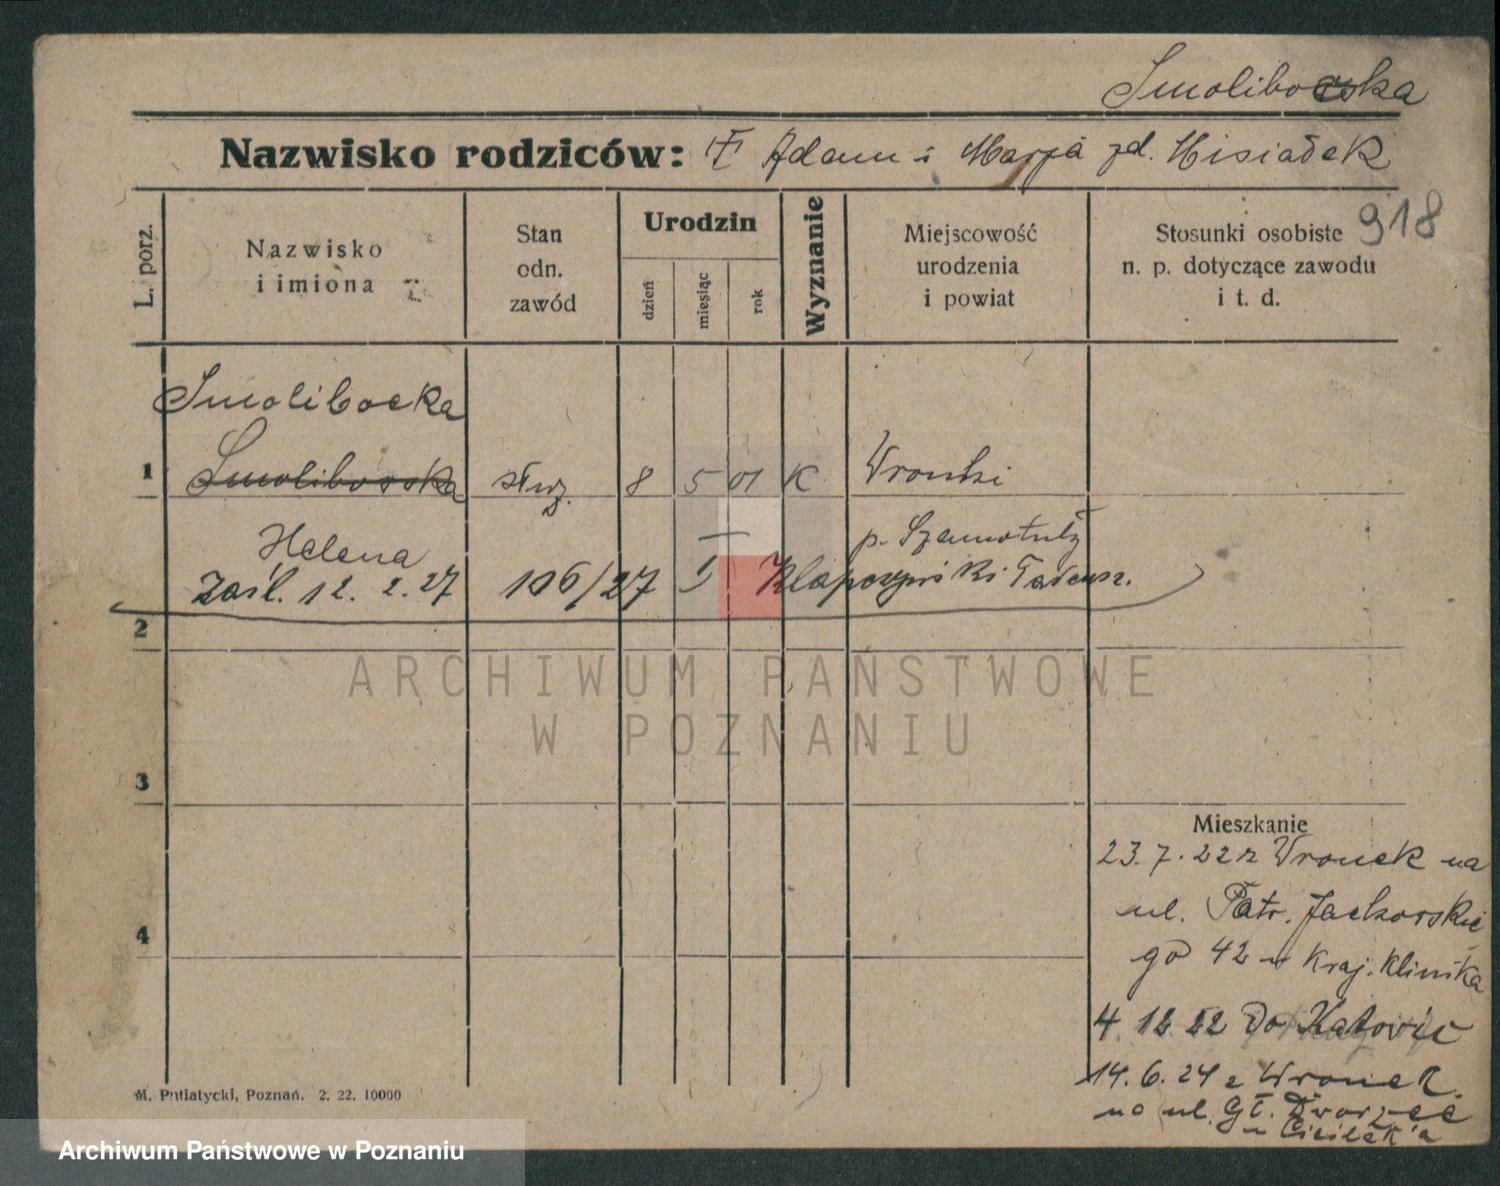 Smolibocka
Nazwisko rodziców: Adam i Marja zd. Misiałek
918
L. porz.
Nazwisko
i imiona
Stan
odn.
zawód
Urodzin
dzień
miesiąc
rok
Wyznanie
Miejscowość
urodzenia
i powiat
Stosunki osobiste
n. p. dotyczące zawodu
i t. d.
Smolibocka
1 Smoliborska służ. 8 5 01 K Wronki
Helena p. Szamotuły
Zaśl. 12. 2. 27 106/27 Tadeusz.
2
ARCHIWUM PAŃSTWOWE
W POZNANIU
3
Mieszkanie
23. 7. 22 z Wronek na
ul. Patr. Jackowskie
go 42 w Kraj. Klinika
4
4. 12 22 Do Katowic
14. 6. 24 z Wronek.
na ul. Gł. Dworzec
M. Putiatycki, Poznań. 2. 22. 10000
Archiwum Państwowe w Poznaniu